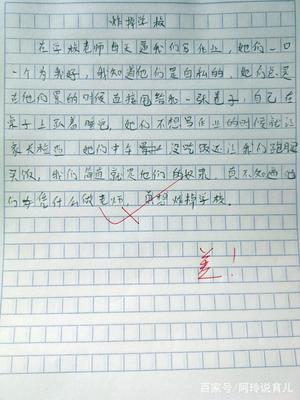 炸掉学校
在学校老师每天逼我们写作业，她们一口
一个为我好，我知道他们是自私的。她们总是
在他们累的时候直接甩给我一张卷子，自己在
桌子上趴着睡觉，她们不想写作业的时候就让
家长检查 她们中午 没吃饭还让我们跑腿
买饭，我们简直就是他们的奴隶，真不知道他
们为凭什么做老师，真想炸掉学校。
差！
百家号/阿玲说育儿